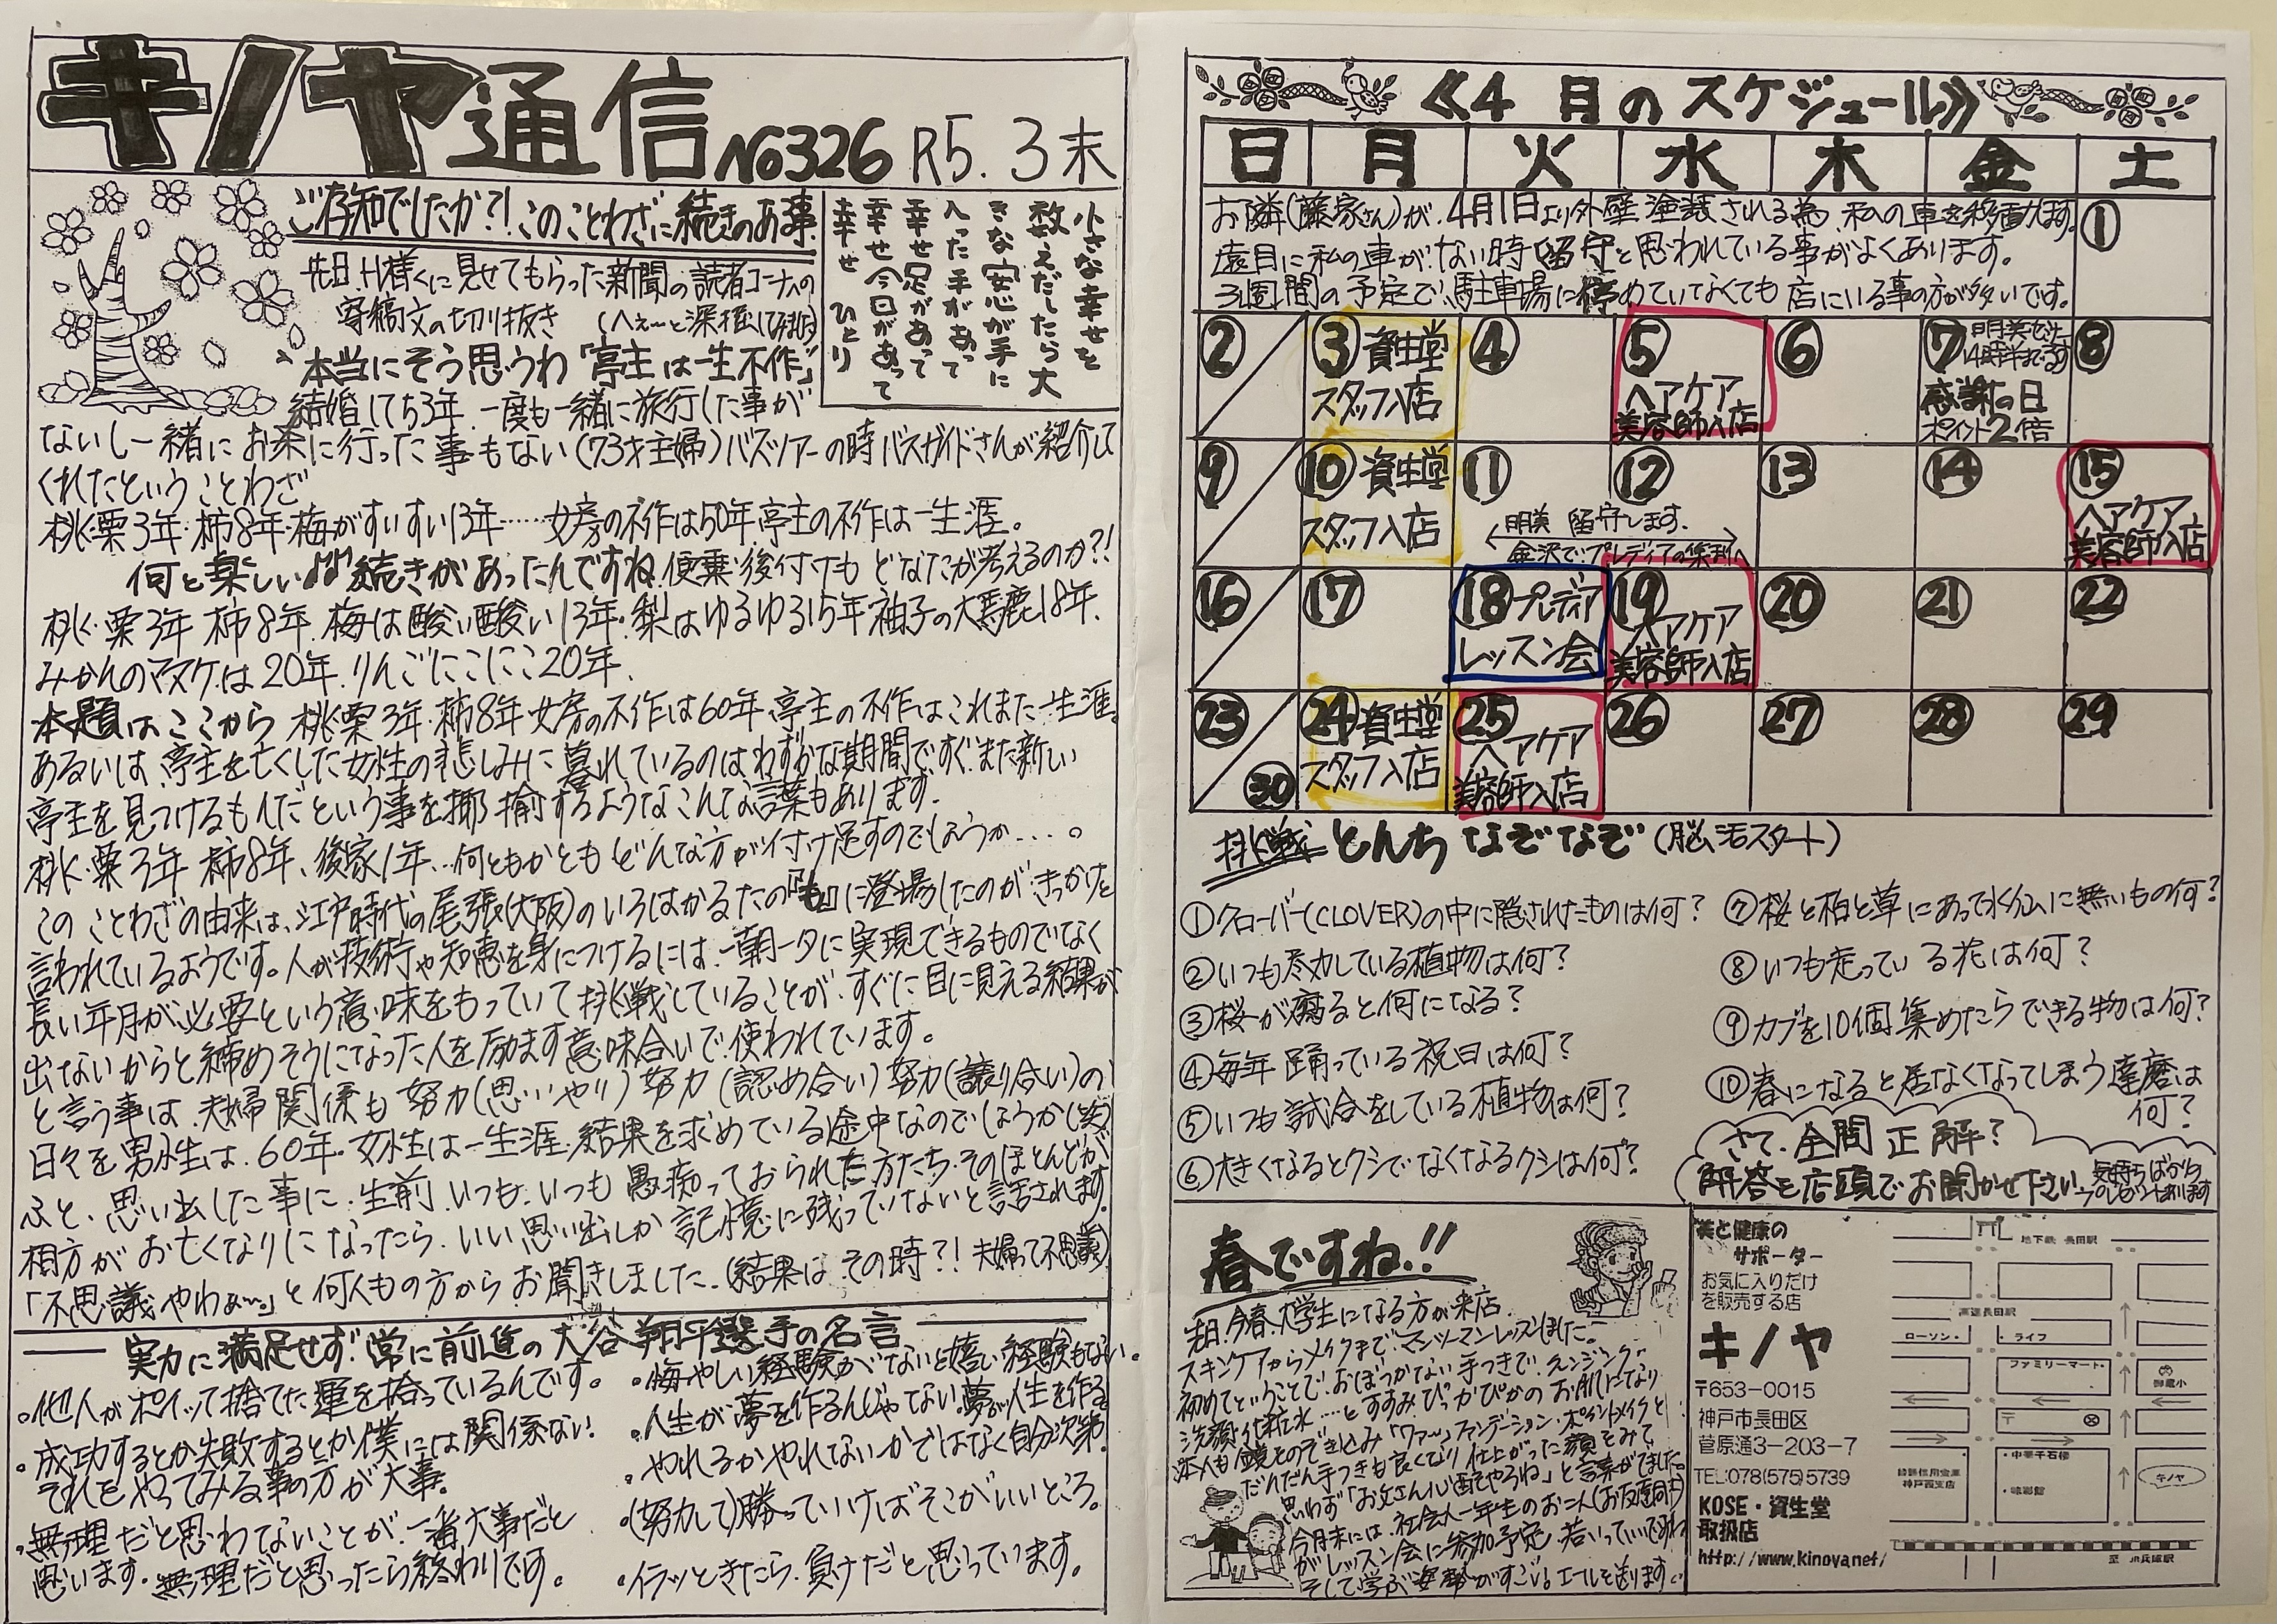 キノヤ通信 No326 R5.3末
ご存知でしたか?!このことわざに続きのある事
小さな幸せを
数えだしたら大
きな安心が手に
入った手があって
幸せ足があって
幸せ今日があって
幸せ ひとり
先日、H様に見せてもらった新聞の読者コーナーの
寄稿文の切り抜き
本当にそう思うわ「亭主は一生不作」
結婚して53年、一度も一緒に旅行した事が
ないし一緒にお茶に行った事もない(73才主婦)バスツアーの時バスガイドさんが紹介して
くれたということわざ
桃・栗3年・柿8年・梅がすいすい13年……女房の不作は50年、亭主の不作は一生涯。
何と楽しい♪♪続きがあったんですね、便乗・後付けもどなたが考えるのか?!
桃・栗3年 柿8年、梅は酸い酸い13年・梨はゆるゆる15年 柚子の大馬鹿18年、
みかんのマヌケは20年、りんごにこにこ20年、
本題はここから 桃栗3年・柿8年 女房の不作は60年、亭主の不作はこれまた一生涯。
あるいは、亭主を亡くした女性の悲しみに暮れているのはわずかな期間ですぐまた新しい
亭主を見つけるもんだという事を揶揄するようなこんな言葉もあります。
桃・栗3年 柿8年、後家1年…何ともかともどんな方が付け足すのでしょうか…。
このことわざの由来は、江戸時代の尾張(大阪)のいろはかるたの『も』に登場したのがきっかけと
言われているようです。人が技術や知恵を身につけるには、一朝一夕に実現できるものでなく
長い年月が必要という意味をもっていて挑戦していることが、すぐに目に見える結果が
出ないからと締めそうになった人を励ます意味合いで使われています。
と言う事は、夫婦関係も努力(思いやり)努力(認め合い)努力(譲り合い)の
日々を男性は、60年・女性は一生涯、結果を求めている途中なのでしょうか(笑)
ふと、思い出した事に、生前、いつも、いつも愚痴っておられた方たち、そのほとんどが
相方がお亡くなりになったら、いい思い出しか記憶に残っていないと話されます。
「不思議やわぁ〜。」と何人もの方からお聞きしました。(結果はその時?!夫婦って不思議)
実力に満足せず常に前進の大谷翔平選手の名言
・他人がポイッて捨てた運を拾っているんです。
・成功するとか失敗するとか僕には関係ない!
それをやってみる事の方が大事。
・無理だと思わないことが、一番大事だと
思います。無理だと思ったら終わりです。
・悔やしい経験がないと嬉しい経験もない。
・人生が夢を作るんじゃない。夢が人生を作る
・やれるかやれないかではなく自分次第。
・(努力して)勝っていけばそこがいいところ。
・イラッときたら、負けだと思っています。
《4月のスケジュール》
日 月 火 水 木 金 土
お隣(藤家さん)が、4月1日より外壁塗装される為、私の車を移動します。
遠目に私の車がない時留守と思われている事がよくあります。
3週間の予定で、駐車場に停めていなくても店にいる事の方が多いです。
①
② ③資生堂 ④ ⑤ ⑥ ⑦ ⑧
スタッフ入店
ヘアケア
美容師入店
感謝の日
ポイント2倍
⑨ ⑩資生堂 ⑪ ⑫ ⑬ ⑭ ⑮
スタッフ入店
明美 留守します。
金沢でプレディアの集まり
ヘアケア
美容師入店
⑯ ⑰ ⑱プレディア ⑲ ⑳ ㉑ ㉒
レッスン会
ヘアケア
美容師入店
㉓ ㉔資生堂 ㉕ ㉖ ㉗ ㉘ ㉙
㉚
スタッフ入店
ヘアケア
美容師入店
挑戦 とんちなぞなぞ(脳活スタート)
①クローバー(CLOVER)の中に隠されたものは何?
②いつも尽力している植物は何?
③桜が腐ると何になる?
④毎年踊っている祝日は何?
⑤いつも試合をしている植物は何?
⑥大きくなるとクシでなくなるクシは何?
⑦桜と柏と草にあって水仙に無いもの何?
⑧いつも走っている花は何?
⑨カブを10個集めたらできる物は何?
⑩春になると居なくなってしまう達磨は
何?
さて、全問正解?
解答を店頭でお聞かせ下さい、気持ちばかりの
プレゼントあります
春ですね!!
先日、今春、大学生になる方が来店
スキンケアからメイクまで、マンツーマンレッスンしました。
初めてということで、おぼつかない手つきで、クレンジング
洗顔・化粧水…とすすみぴっかぴかのお肌になり
本人も鏡をのぞき込み「ワァ〜」ファンデーション・ポイントメイクと
だんだん手つきも良くなり仕上がった顔をみて
思わず「お父さん心配するやろね」と言葉がでました。
今月末には、社会人一年生のお二人(お友達同士)
がレッスン会に参加予定、若いっていいですね
そして学ぶ姿勢がすごい。エールを送ります。
美と健康の
サポーター
お気に入りだけ
を販売する店
キノヤ
〒653-0015
神戸市長田区
菅原通3-203-7
TEL:078(575)5739
KOSE・資生堂
取扱店
http://www.kinoya.net/
地下鉄 長田駅
高速長田駅
ローソン・
・ライフ
ファミリーマート・
御蔵小
〒
・中華千石楼
神戸西支店
・味彩館
キノヤ
至 JR兵庫駅